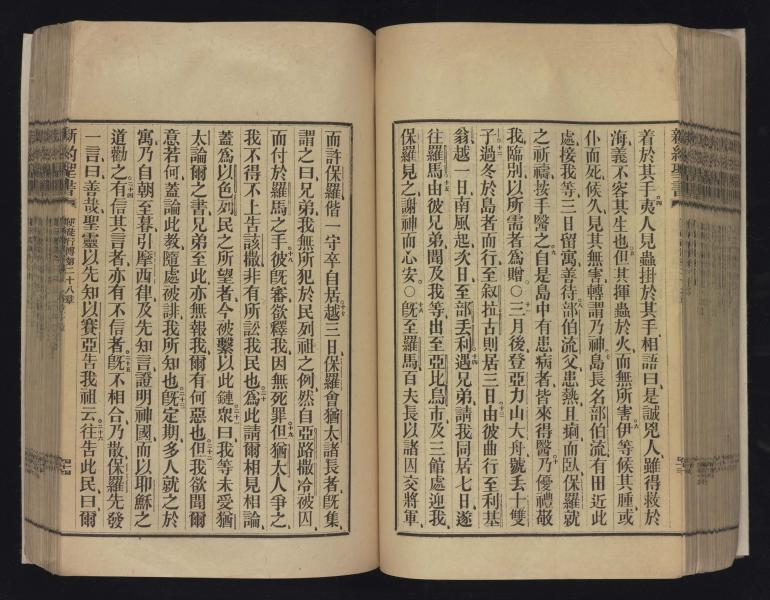 新約聖書
着於其手夷人見蟲掛於其手相語曰是誠兇人雖得救於
海義不容其生也但其揮蟲於火而無所害伊等候其腫或
仆而死候久見其無害轉謂乃神島長名部伯流有田近此
處接我等三日留寓善待部伯流父患熱且痢而臥保羅就
之祈禱按手醫之自是島中有患病者皆來得醫乃優禮敬
我臨別以所需者為贈○三月後登亞力山大舟號丢十雙
子過冬於島者而行至叙拉古則居三日由彼曲行至利基
翁越一日南風起次日至部丢利遇兄弟請我同居七日遂
往羅馬由彼兄弟聞及我等出至亞比烏市及三館處迎我
保羅見之謝神而心安○旣至羅馬百夫長以諸囚交將軍
而許保羅偕一守卒自居越三日保羅會猶太諸長者旣集
謂之曰兄弟我無所犯於民列祖之例然自亞路撒冷被囚
而付於羅馬之手彼旣審欲釋我因無死罪但猶太人爭之
我不得不上告該撒非有所訟我民也為此請爾相見相論
蓋為以色列民之所望者今被繫以此鏈衆曰我等未受猶
太論爾之書兄弟至此亦無報我爾有何惡也但我欲聞爾
意若何蓋論此教隨處被誹我所知也旣定期多人就之於
寓乃自朝至暮引摩西律及先知言證明神國而以耶穌之
道勸之有信其言者亦有不信者旣不相合乃散保羅先發
一言曰善哉聖靈以先知以賽亞告我祖云往告此民曰爾
新約聖書
使徒行傳第二十八章